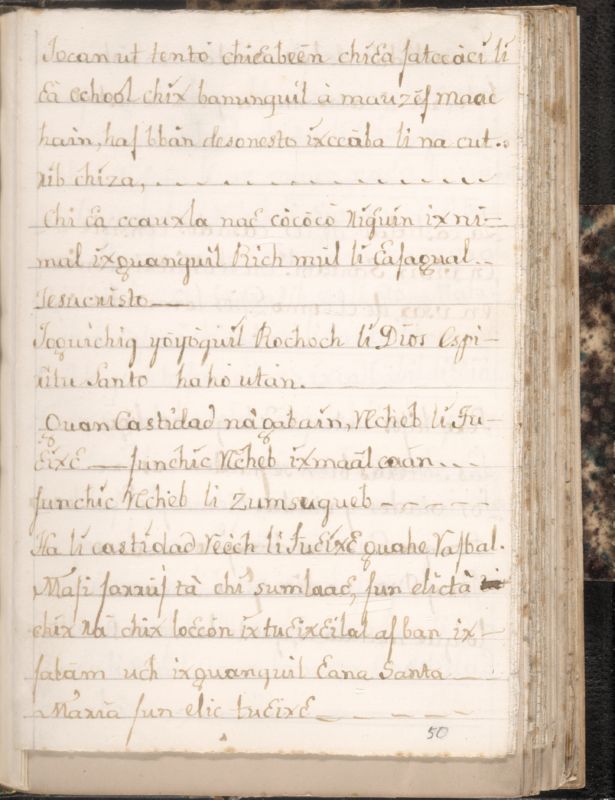 Jocan ut tento chiɛabeēn chiɛa ſatccàcí li
ɛà cchool chix banunquil à mauzēſ maàc
hain, haſ bbàn desonesto ixccàba li na cut..
xib chíza,
Chi ɛà ccauxla naɛ còcòcò Niguin ix ni-
mal ixquanquil Rich mul li ɛaſaqual..
Jesucristo
Joquichiq yòyòquil Rochoch li Dios Espi-
ritu Santo hahò utàn.
Quan Castidad nàqabaín, Ncheb li Ju-
ɛixɛ — junchic Ncheb ixmaàl caàn...
junchic Ncheb li Zumsuqueb
Ha li castidad Veèch li Juɛixɛ quahe Vaſbal.
Maſi ſaxrìiſ tà chi sumlaaɛ, ſun elictà
chix nà chix loccón ix tuɛixɛilal aſ ban ix-
ſabàm uch ixquanquil ɛana Santa
Maria ſun elic tuɛixɛ
50